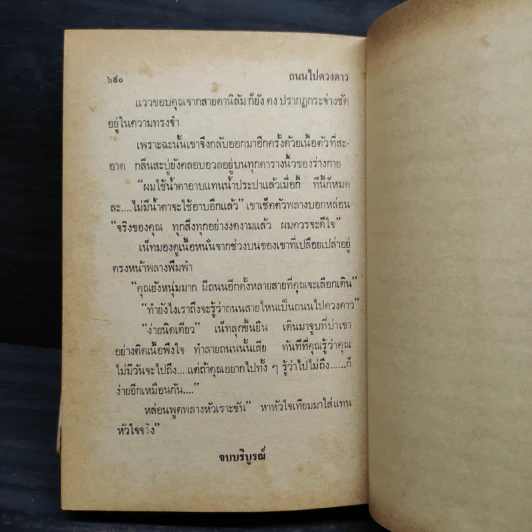 ๖๙๐
ถนนไปดวงดาว
แววขอบคุณจากสายตานิลัม ก็ยัง คง ปรากฏกระจ่างชัด
อยู่ในความทรงจำ
เพราะฉะนั้นเขาจึงกลับออกมาอีกครั้งด้วยเนื้อตัวที่สะ-
อาด กลิ่นสะบู่ยังคลอบอวลอยู่บนทุกตารางนิ้วของร่างกาย
“ผมใช้น้ำตาอาบแทนน้ำประปาแล้วเมื่อกี้ ทีนี้ก็หมด
ละ....ไม่มีน้ำตาจะใช้อาบอีกแล้ว” เขาเช็ดตัวพลางบอกหล่อน
“จริงของคุณ ทุกสิ่งทุกอย่างงดงามแล้ว ผมควรจะดีใจ”
เน็ทมองดูเนื้อหนั่นจากช่วงบนของเขาที่เปลือยเปล่าอยู่
ตรงหน้าพลางพึมพำ
“คุณยังหนุ่มมาก มีถนนอีกตั้งหลายสายที่คุณจะเลือกเดิน”
“ทำยังไงเราถึงจะรู้ว่าถนนสายไหนเป็นถนนไปดวงดาว”
“ง่ายนิดเดียว” เน็ทลุกขึ้นยืน เดินมาจูบที่บ่าเขา
อย่างติดเนื้อพึงใจ ทำลายถนนนั้นเสีย ทันทีที่คุณรู้ว่าคุณ
ไม่มีวันจะไปถึง... แต่ถ้าคุณอยากไปทั้ง ๆ รู้ว่าไปไม่ถึง......ก็
ง่ายอีกเหมือนกัน....”
หล่อนพูดพลางหัวเราะขัน” หาหัวใจเทียมมาใส่แทน
หัวใจจริง”
จบบริบูรณ์